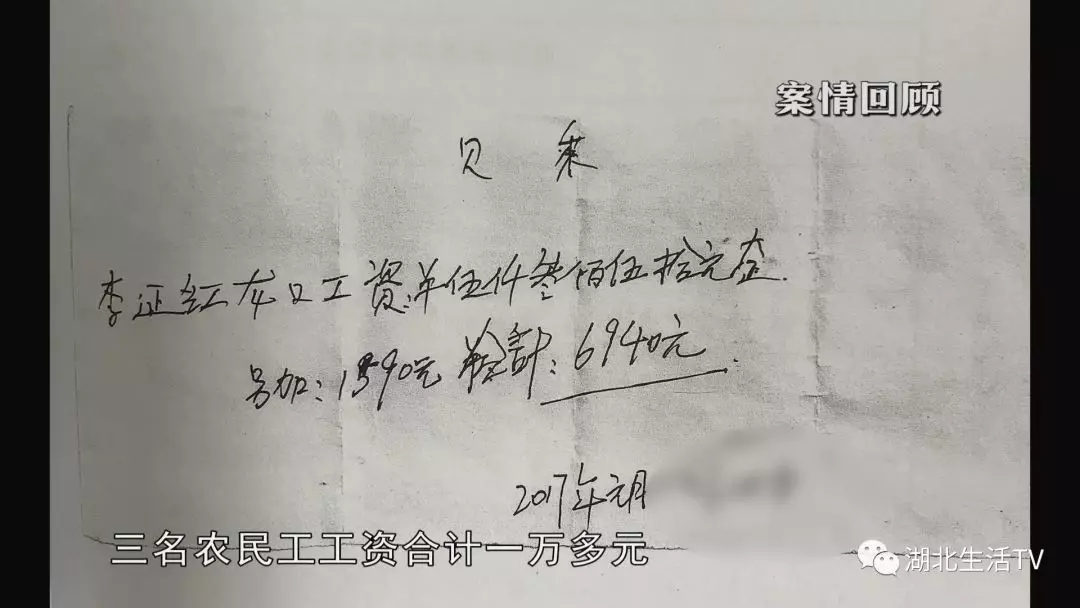 案情回顾
见条
李证红龙口工资单伍仟叁佰伍拾元整.
另加:1590元 总计:6940元
2017年元月
三名农民工工资合计一万多元
湖北生活TV